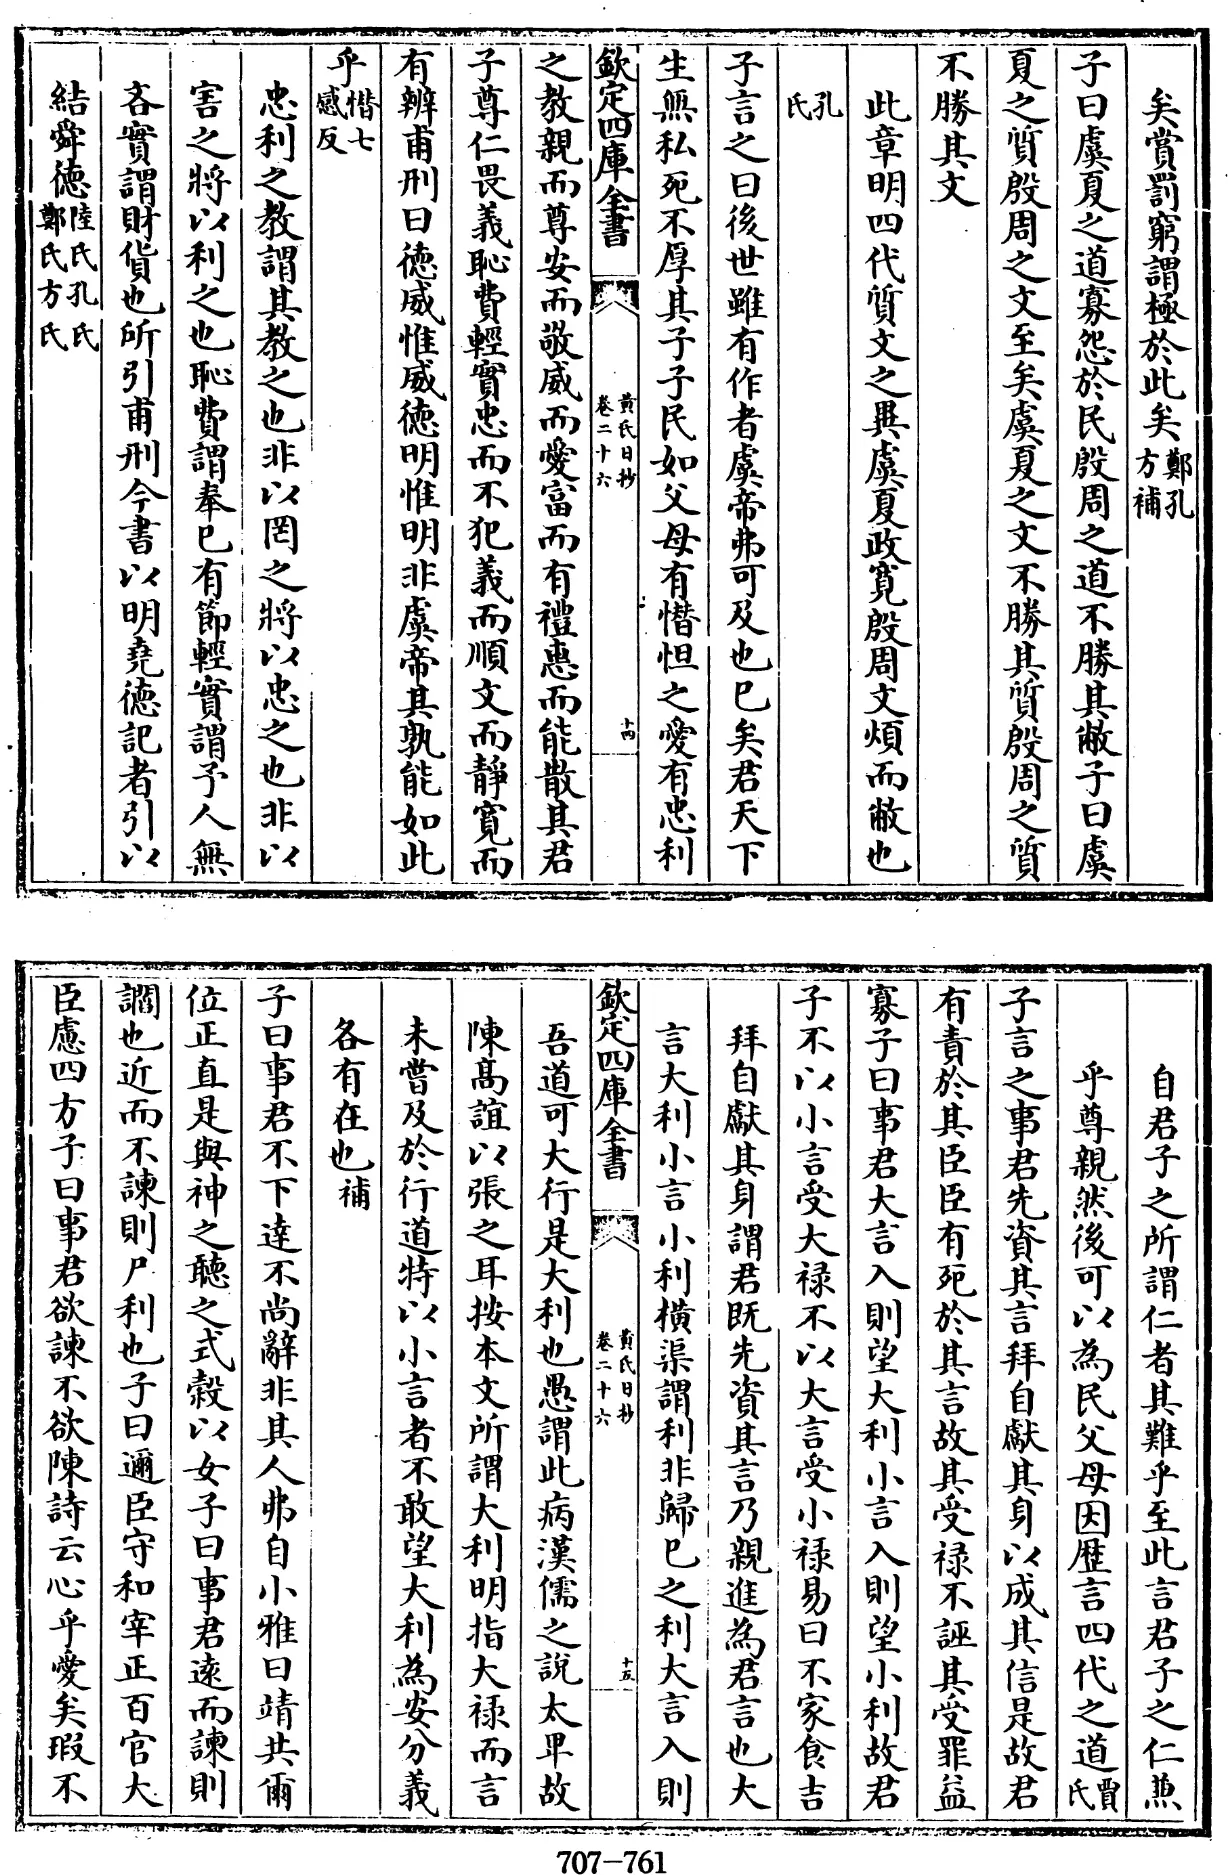 矣賞罰窮謂極於此矣鄭孔方補
子曰虞夏之道寡怨於民殷周之道不勝其敝子曰虞
夏之質殷周之文至矣虞夏之文不勝其質殷周之質
不勝其文
此章明四代質文之異虞夏政寛殷周文煩而敝也
孔氏
子言之曰後世雖有作者虞帝弗可及也已矣君天下
生無私死不厚其子子民如父母有憯怛之愛有忠利
欽定四庫全書
黄氏日抄
卷二十六
十四
之教親而尊安而敬威而愛富而有禮惠而能散其君
子尊仁畏義恥費輕實忠而不犯義而順文而靜寛而
有辨甫刑曰德威惟威德明惟明非虞帝其孰能如此
乎憯七感反
忠利之教謂其教之也非以罔之將以忠之也非以
害之將以利之也恥費謂奉已有節輕實謂予人無
吝實謂財貨也所引甫刑今書以明堯德記者引以
結舜德陸氏孔氏鄭氏方氏
自君子之所謂仁者其難乎至此言君子之仁兼
乎尊親然後可以為民父母因歴言四代之道賈氏
子言之事君先資其言拜自獻其身以成其信是故君
有責於其臣臣有死於其言故其受禄不誣其受罪益
寡子曰事君大言入則望大利小言入則望小利故君
子不以小言受大禄不以大言受小禄易曰不家食吉
拜自獻其身謂君既先資其言乃親進為君言也大
言大利小言小利横渠謂利非歸已之利大言入則
欽定四庫全書
黄氏日抄
卷二十六
十五
吾道可大行是大利也愚謂此病漢儒之說太卑故
陳髙誼以張之耳按本文所謂大利明指大禄而言
未嘗及於行道特以小言者不敢望大利為安分義
各有在也補
子曰事君不下達不尚辭非其人弗自小雅曰靖共爾
位正直是與神之聽之式榖以女子曰事君遠而諫則
讇也近而不諫則尸利也子曰邇臣守和宰正百官大
臣慮四方子曰事君欲諫不欲陳詩云心乎愛矣瑕不
707-761